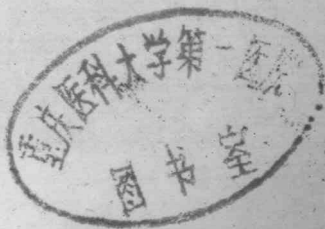 重庆医科大学第一医院
图书室